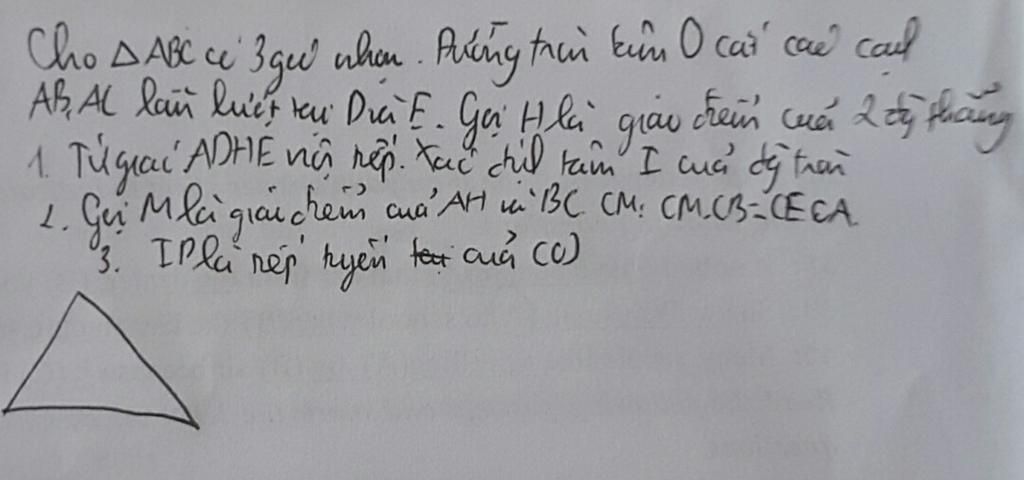 Cho △ABC có 3 góc nhọn. Đường tròn tâm O cắt các cạnh
AB, AC lần lượt tại D và E. Gọi H là giao điểm của 2 đg thẳng
1. Tứ giác ADHE nội tiếp. Xác định tâm I của đg tròn
2. Gọi M là giao điểm của AH và BC. CM: CM.CB=CE.CA
3. ID là tiếp tuyến của (O)